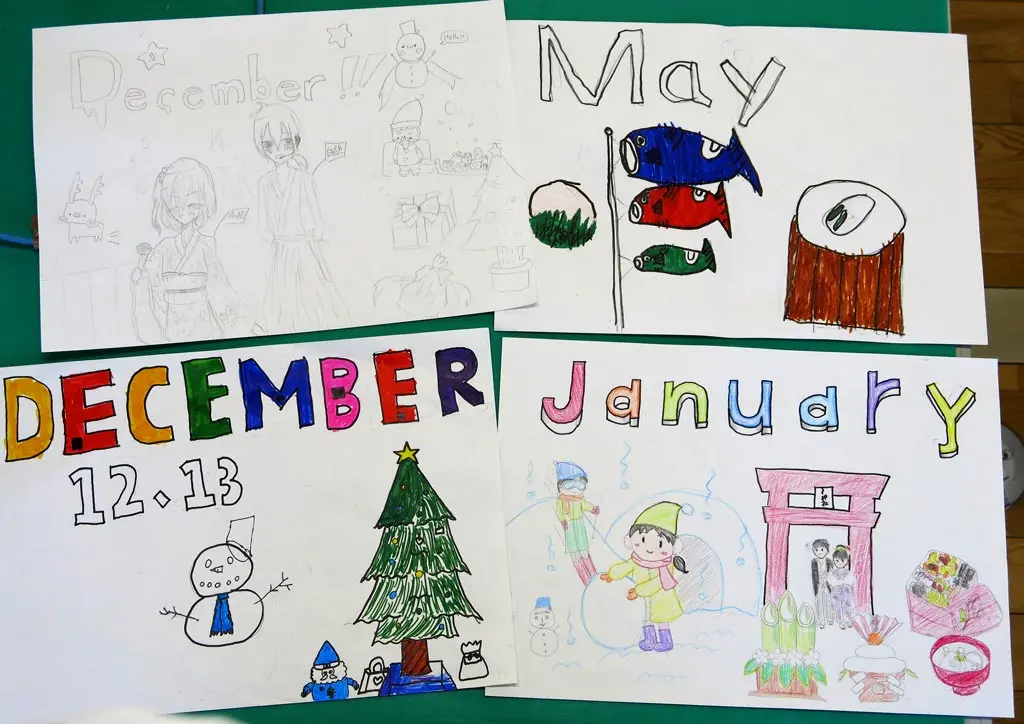 December!!
Hello!
May
DECEMBER
12.13
January